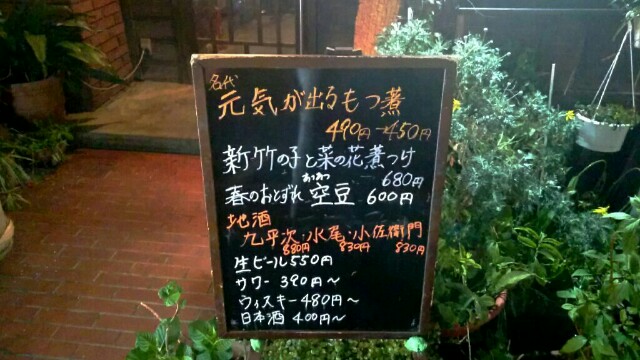 名代
元気が出るもつ煮
490円→450円
新竹の子と菜の花煮つけ
680円
春のおとずれ 空豆 600円
地酒
九平次・水尾・小佐衛門
880円 830円 830円
生ビール 550円
サワー 390円～
ウィスキー 480円～
日本酒 400円～